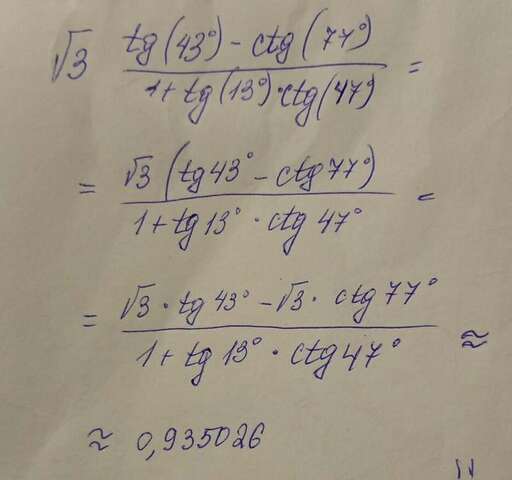 √3 (tg(43°) - ctg(77°))/(1+tg(13°)·ctg(47°)) =
= (√3 (tg43° - ctg77°))/(1+tg13° · ctg47°) =
= (√3 · tg43° - √3 · ctg77°)/(1+tg13° · ctg47°) ≈
≈ 0,935026